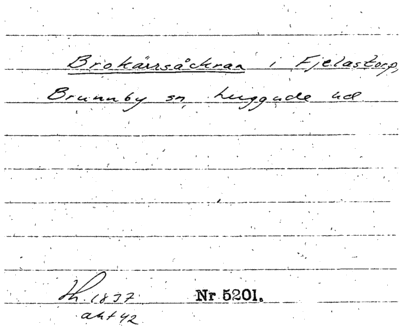 Brokärrsåckran i Fjelastorp,
Brunnby sn, Luggude hd
1837 Nr 5201.
akt 42